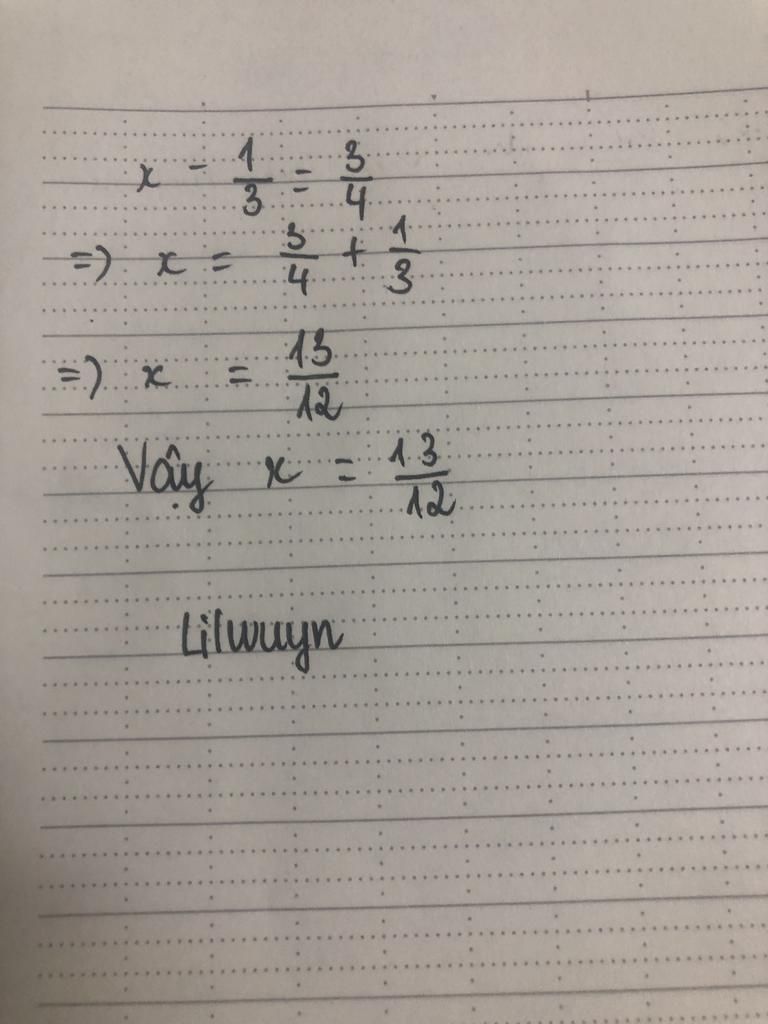 x - 1/3 = 3/4
=) x = 3/4 + 1/3
=) x = 13/12
Vậy x = 13/12
Lilwuyn